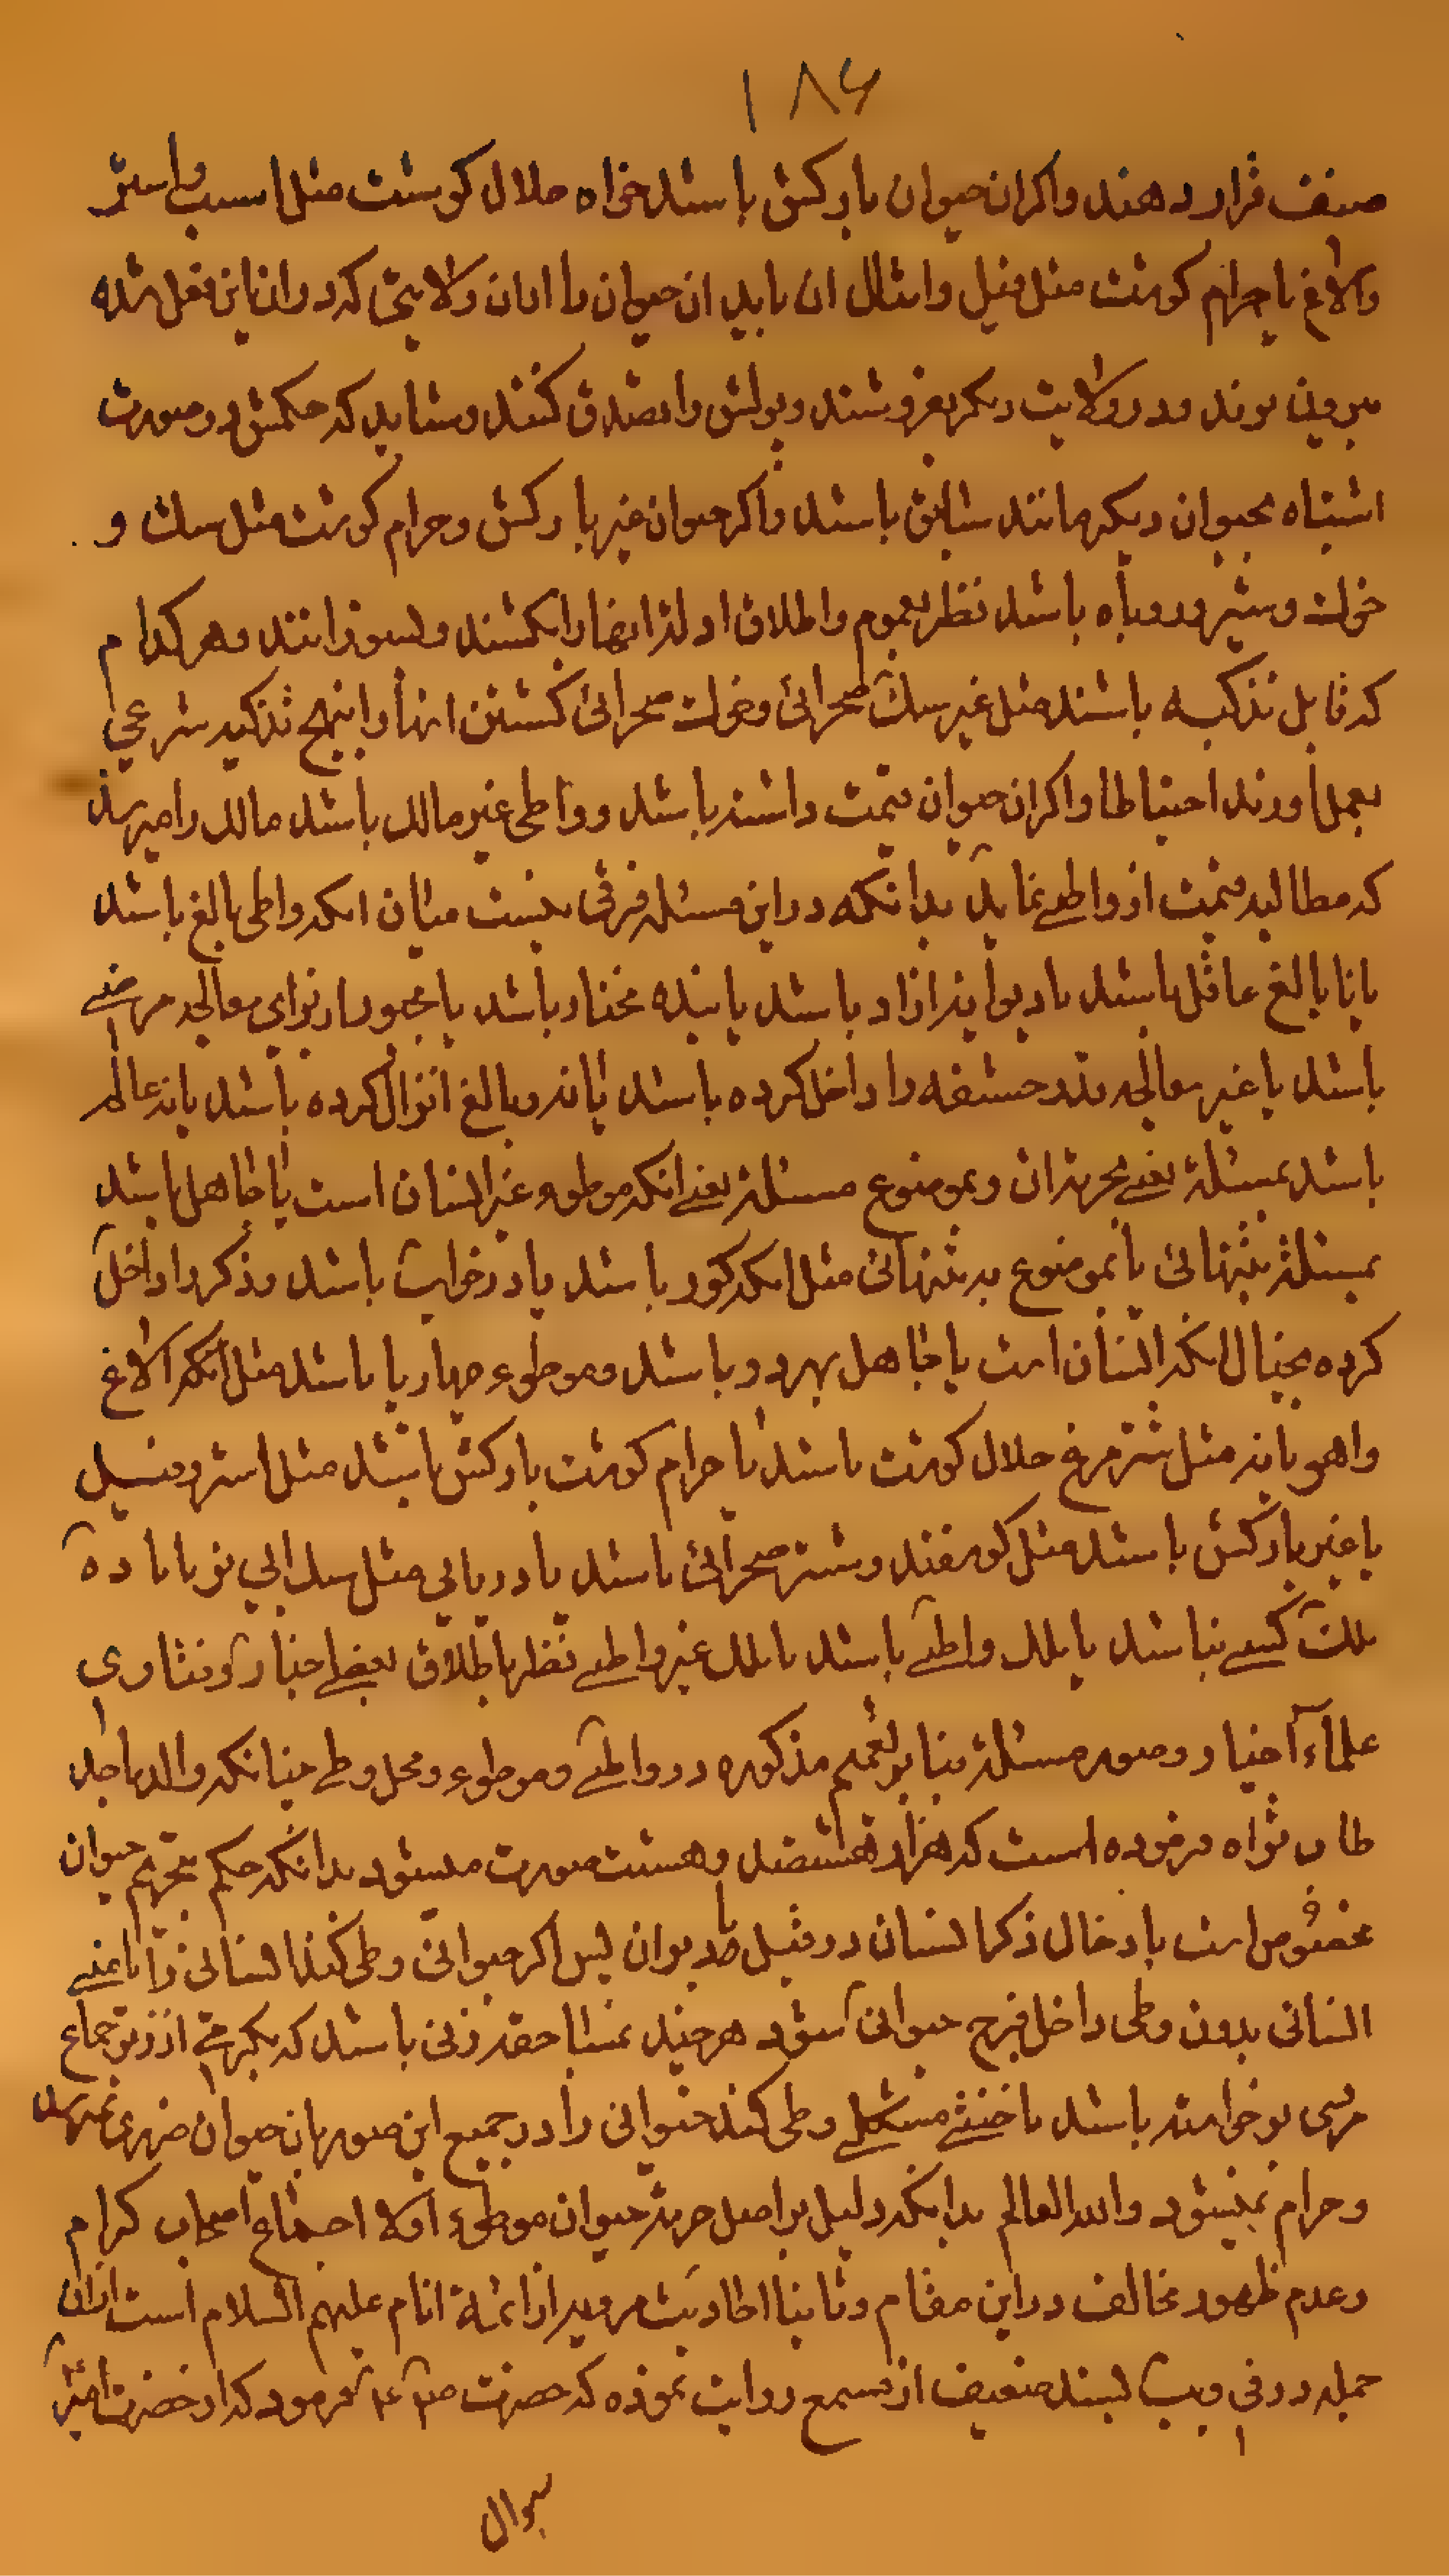 ۱۸۶
صنف قرار دهند و اکر ان حیوان بارکش باشد خواه حلال کوشت مثل اسب و استر
و الاغ یا حرام کوشت مثل فیل و امثال ان باید ان حیوان را از ان ولایتی که در ان این فعل شده
بیرون برند و در ولایت دیکر بفروشند و پولش را تصدق کنند و شاید که حکمش در صورت
اشتباه بحیوان دیکر مانند سابق باشد و اکر حیوان غیر بارکش و حرام کوشت مثل سك و
خوك و شیر و روباه باشد نظر بعموم و اطلاق ادله انها را بکشند و بسوزانند و هر کدام
که قابل تذکیه باشند مثل غیر سك صحرائی و خوك صحرائی کشتن انها را بنهج تذکیه شرعی
بعمل اورند احتیاطا و اکر ان حیوان قیمت داشته باشد و واطی غیر مالك باشد مالك را میرسد
که مطالبه قیمت از واطی نماید بدانکه در این مسئله فرقی نیست میان انکه واطی بالغ باشد
یا نابالغ عاقل باشد یا دیوانه ازاد باشد یا بنده مختار باشد یا مجبور از برای معالجه مرضی
باشد یا غیر معالجه بقدر حشفه را داخل کرده باشد یا نه و بالغ انزال کرده باشد یا نه عالم
باشد بمسئله یعنی بحرمة ان و بموضوع مسئله یعنی انکه موطوء غیر انسان است یا جاهل باشد
بمسئله بتنهائی یا بموضوع به تنهائی مثل انکه کور باشد یا در خواب باشد و ذکر را داخل
کرده بخیال انکه انسان است یا جاهل بهر دو باشد و موطوء چهار پا باشد مثل انکه الاغ
و اهو یا نه مثل شترمرغ حلال کوشت باشد یا حرام کوشت بارکش باشد مثل استر و فیل
یا غیر بارکش باشد مثل کوسفند و شتر صحرائی باشد یا دریائی مثل سك ابی نر یا ماده
ملك کسی نباشد یا ملك واطی باشد یا ملك غیر واطی نظر باطلاق بعضی اخبار و فتاوی
علماء اخیار و صور مسئله بنا بر تعمیم مذکوره در واطی و موطوء و محل وطی چنانکه والد ماجد
طاب ثراه فرموده است که هزار و هشتصد و هشت صورت میشود بدانکه حکم بتحریم حیوان
مخصوص است بادخال ذکر انسان در قبل یا دبر ان پس اکر حیوانی وطی کند انسانی را یا منی
انسانی بدون وطی داخل فرج حیوانی شود هر چند بمساحقه زنی باشد که بکرمی از زیر جماع
مردی برخواسته باشد یا خنثی مشکلی وطی کند حیوانی را در جمیع این صور بان حیوان ضرری نمیرسد
و حرام نمیشود و الله العالم بدانکه دلیل بر اصل حرمة حیوان موطوء اولا اجماع اصحاب کرام
و عدم ظهور مخالف در این مقام و ثانیا احادیث مرویه از ائمة انام علیهم السلام است از ان
جمله در فی و یب بسند ضعیف از مسمع روایت نموده که حضرت ص ع فرمود که از حضرت امیر
سوال